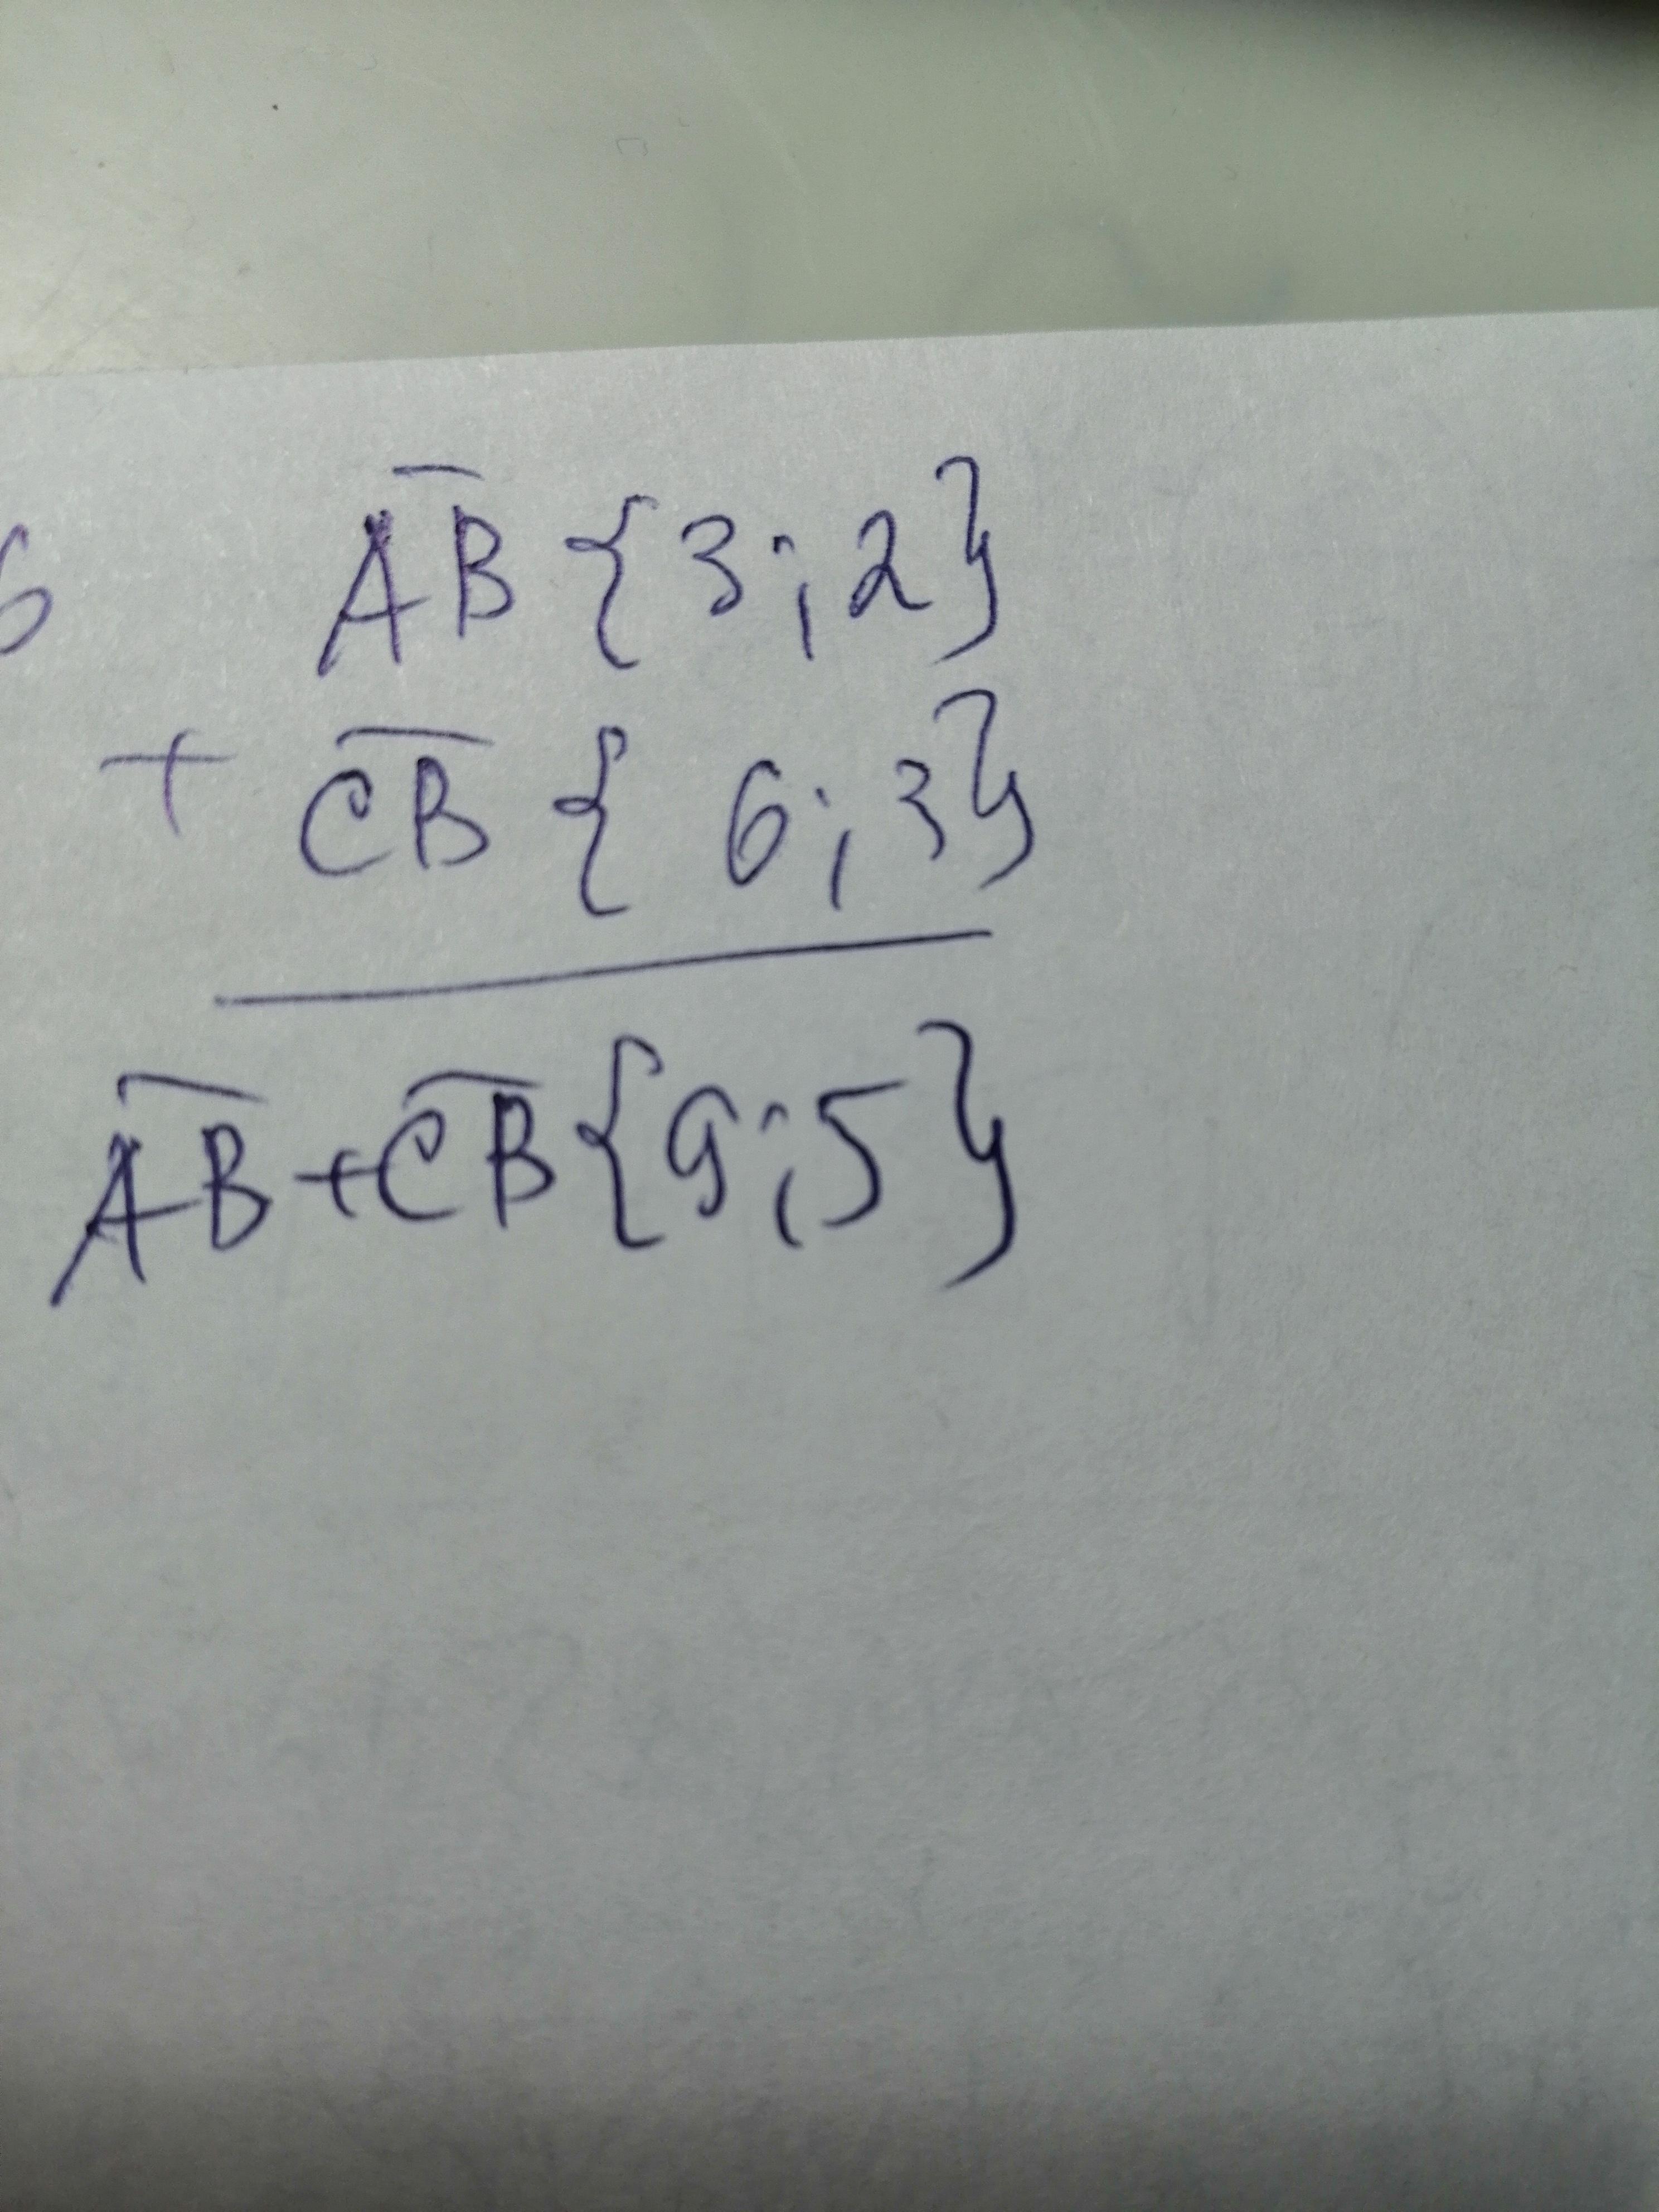 6 A̅B̅ {3;2}
+ C̅B̅ {6;3}
A̅B̅+C̅B̅{9;5}